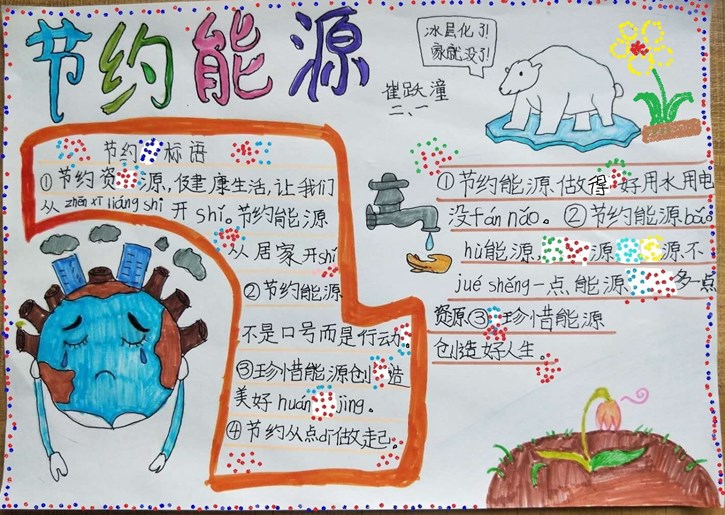 节约能源
冰层化了!
家就没了!
崔跃潼
二、一
节约 标语
①节约资源,健康生活,让我们
从zhēn xī liáng shi开shǐ。节约能源
从居家开shǐ
②节约能源
不是口号而是行动。
③珍惜能源创造
美好huán jìng。
④节约从点dī做起。
①节约能源做得好用水用电
没fán nǎo。②节约能源bǎo
hù能源, 源 源不
jué shěng一点能源 多一点
资源③珍惜能源
创造好人生。